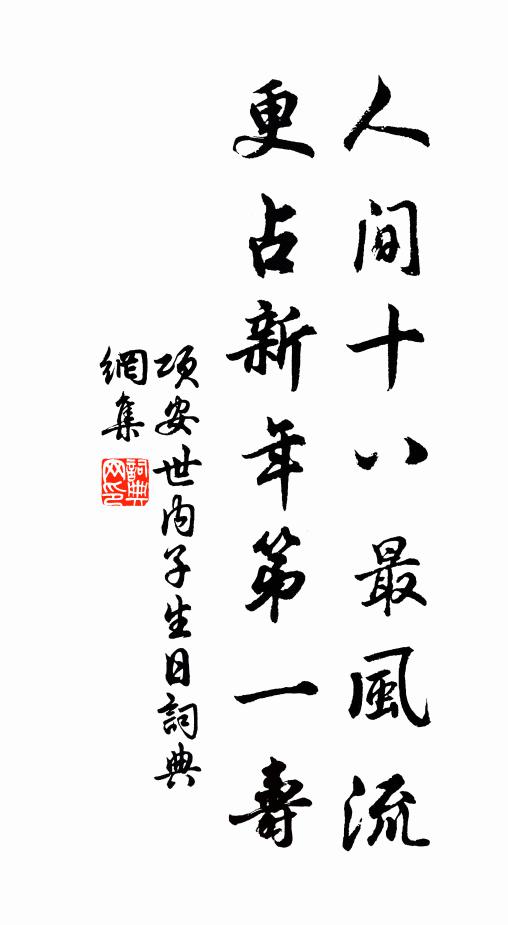 人間十八最風流
更占新年第一壽
項安世內子生日詞典
網集
詞典网印